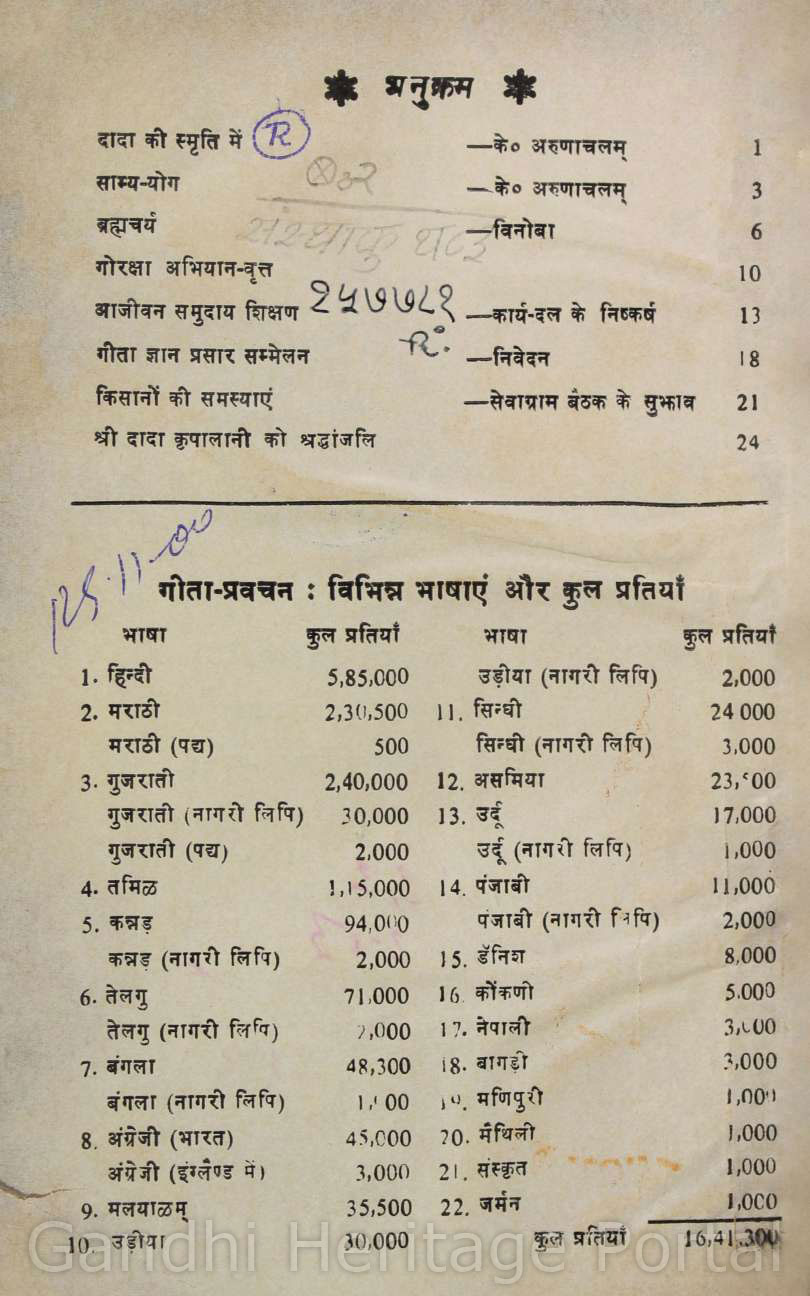 अनुक्रम
दादा की स्मृति में R —के० अरुणाचलम् 1
साम्य-योग —के० अरुणाचलम् 3
ब्रह्मचर्य —विनोबा 6
गोरक्षा अभियान-वृत्त 10
आजीवन समुदाय शिक्षण २५७७८१ —कार्य-दल के निष्कर्ष 13
गीता ज्ञान प्रसार सम्मेलन —निवेदन 18
किसानों की समस्याएं —सेवाग्राम बैठक के सुझाव 21
श्री दादा कृपालानी को श्रद्धांजलि 24
गीता-प्रवचन : विभिन्न भाषाएं और कुल प्रतियाँ
भाषा कुल प्रतियाँ भाषा कुल प्रतियाँ
1. हिन्दी 5,85,000 उड़ीया (नागरी लिपि) 2,000
2. मराठी 2,30,500 11. सिन्धी 24 000
मराठी (पद्य) 500 सिन्धी (नागरी लिपि) 3,000
3. गुजराती 2,40,000 12. असमिया
गुजराती (नागरी लिपि) 30,000 13. उर्दू 17,000
गुजराती (पद्य) 2,000 उर्दू (नागरी लिपि) 1,000
4. तमिळ 1,15,000 14. पंजाबी 11,000
5. कन्नड़ 94,000 पंजाबी (नागरी लिपि) 2,000
कन्नड़ (नागरी लिपि) 2,000 15. डॅनिश 8,000
6. तेलगु 71,000 16. कोंकणी 5,000
तेलगु (नागरी लिपि) 2,000 17. नेपाली 3,000
7. बंगला 48,300 18. बागड़ी 3,000
बंगला (नागरी लिपि) 19. मणिपुरी 1,000
8. अंग्रेजी (भारत) 45,000 20. मैथिली 1,000
अंग्रेजी (इंग्लैण्ड में) 3,000 21. संस्कृत 1,000
9. मलयाळम् 35,500 22. जर्मन 1,000
10. उड़ीया 30,000 कुल प्रतियाँ 16,41,300
Gandhi Heritage Portal